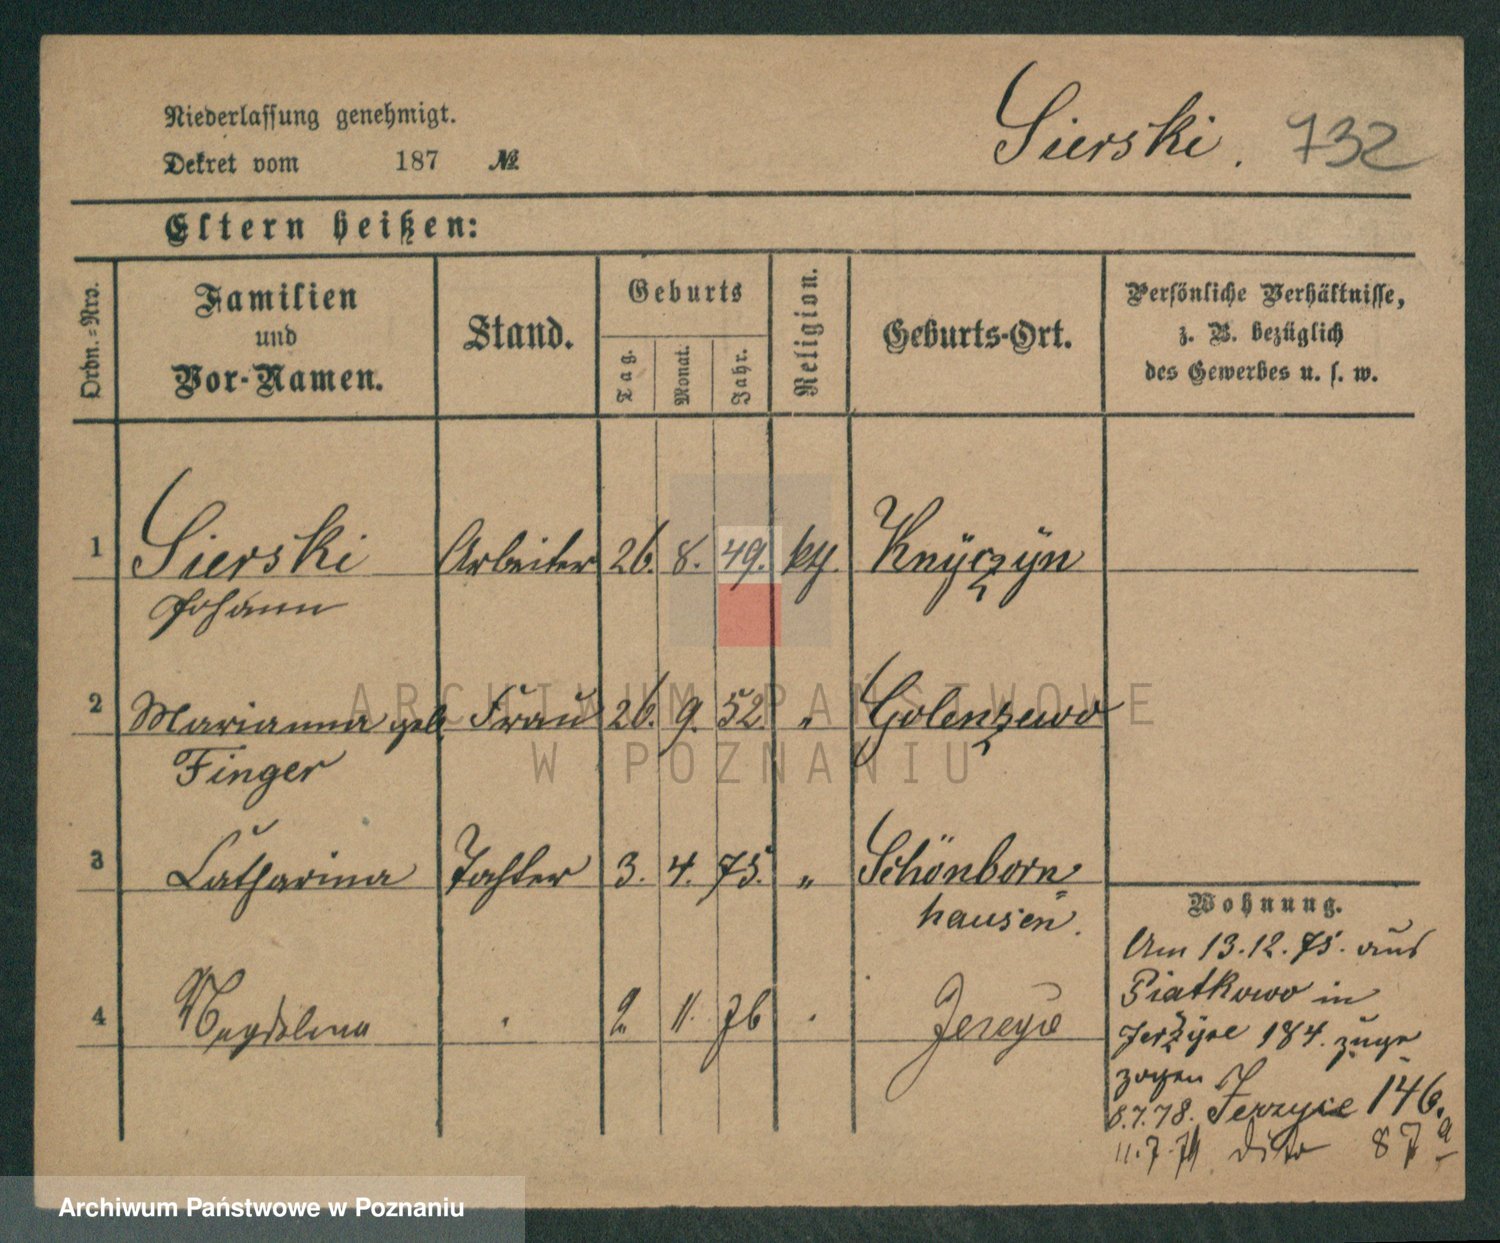 Niederlassung genehmigt.
Dekret vom 187 №
Sierski. 732
Eltern heißen:
Ordn.-Nro.
Familien
und
Vor-Namen.
Stand.
Geburts
Tag.
Monat.
Jahr.
Religion.
Geburts-Ort.
Persönliche Verhältnisse,
z. B. bezüglich
des Gewerbes u. s. w.
1 Sierski Arbeiter 26. 8. 49. kth. Knyczyn
Johann
2 Marianna geb. Frau 26. 9. 52. " Golenzewo
Finger
3 Catharina Tochter 3. 4. 75. " Schönborn-
hausen.
4 Magdalena " 2. 11. 76 "
Wohnung.
Am 13.12.75. aus
Piatkowo in
Jerzyce 184. zuge
zogen
8.7.78. Jerzyce 146.
dito 87a
ARCHIWUM PAŃSTWOWE
W POZNANIU
Archiwum Państwowe w Poznaniu